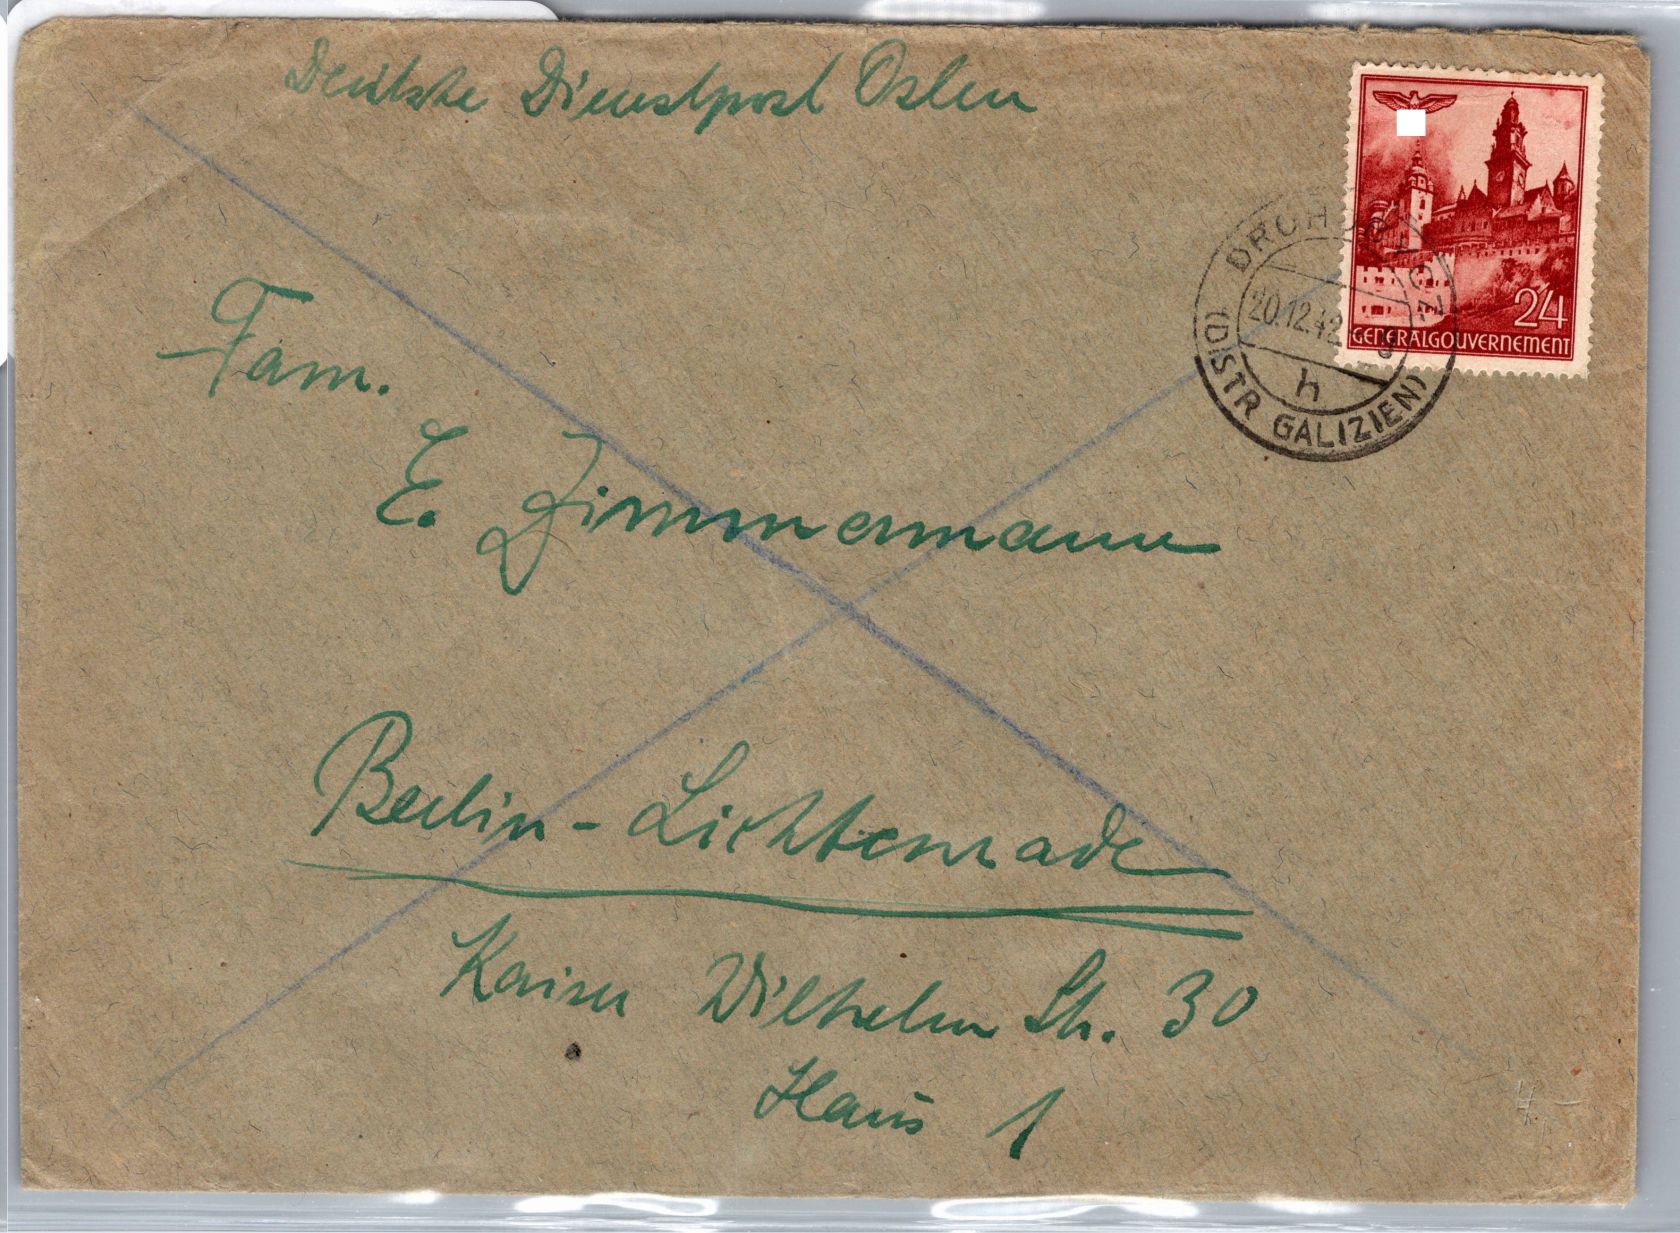 Deutsche Dienstpost Osten
24
GENERALGOUVERNEMENT
DROHOBYCZ
20.12.42
h
(DISTR GALIZIEN)
Fam.
E. Zimmermann
Berlin-Lichtenrade
Kaiser Wilhelm Str. 30
Haus 1